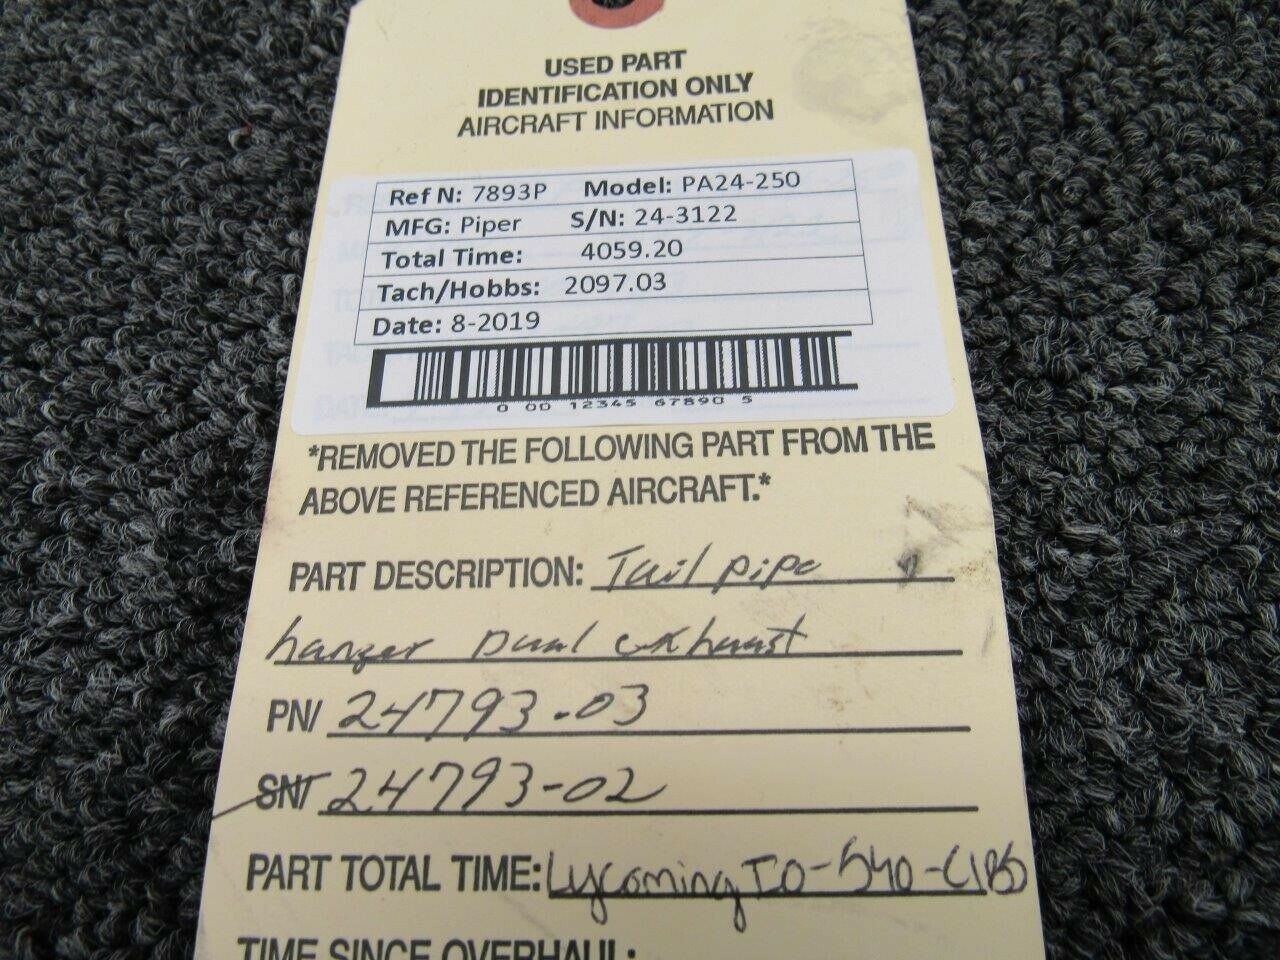 USED PART
IDENTIFICATION ONLY
AIRCRAFT INFORMATION
Ref N: 7893P Model: PA24-250
MFG: Piper S/N: 24-3122
Total Time: 4059.20
Tach/Hobbs: 2097.03
Date: 8-2019
0 00 12345 67890 5
*REMOVED THE FOLLOWING PART FROM THE
ABOVE REFERENCED AIRCRAFT.*
PART DESCRIPTION: Tail pipe
hanger Dual exhaust
PN/ 24793-03
SN/ 24793-02
PART TOTAL TIME: Lycoming IO-540-C1B5
TIME SINCE OVERHAUL: